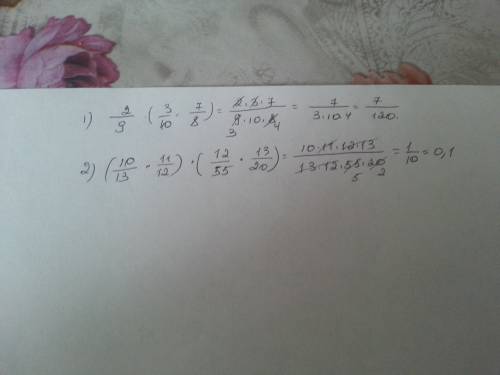 1) 2/9 (3/10 · 7/8) = 2·3·7 / 9·10·8 3 4 = 7 / 3·10·4 = 7/120.
2) (10/13 · 11/12) · (12/55 · 13/20) = 10·11·12·13 / 13·12·55·20 5 2 = 1/10 = 0,1